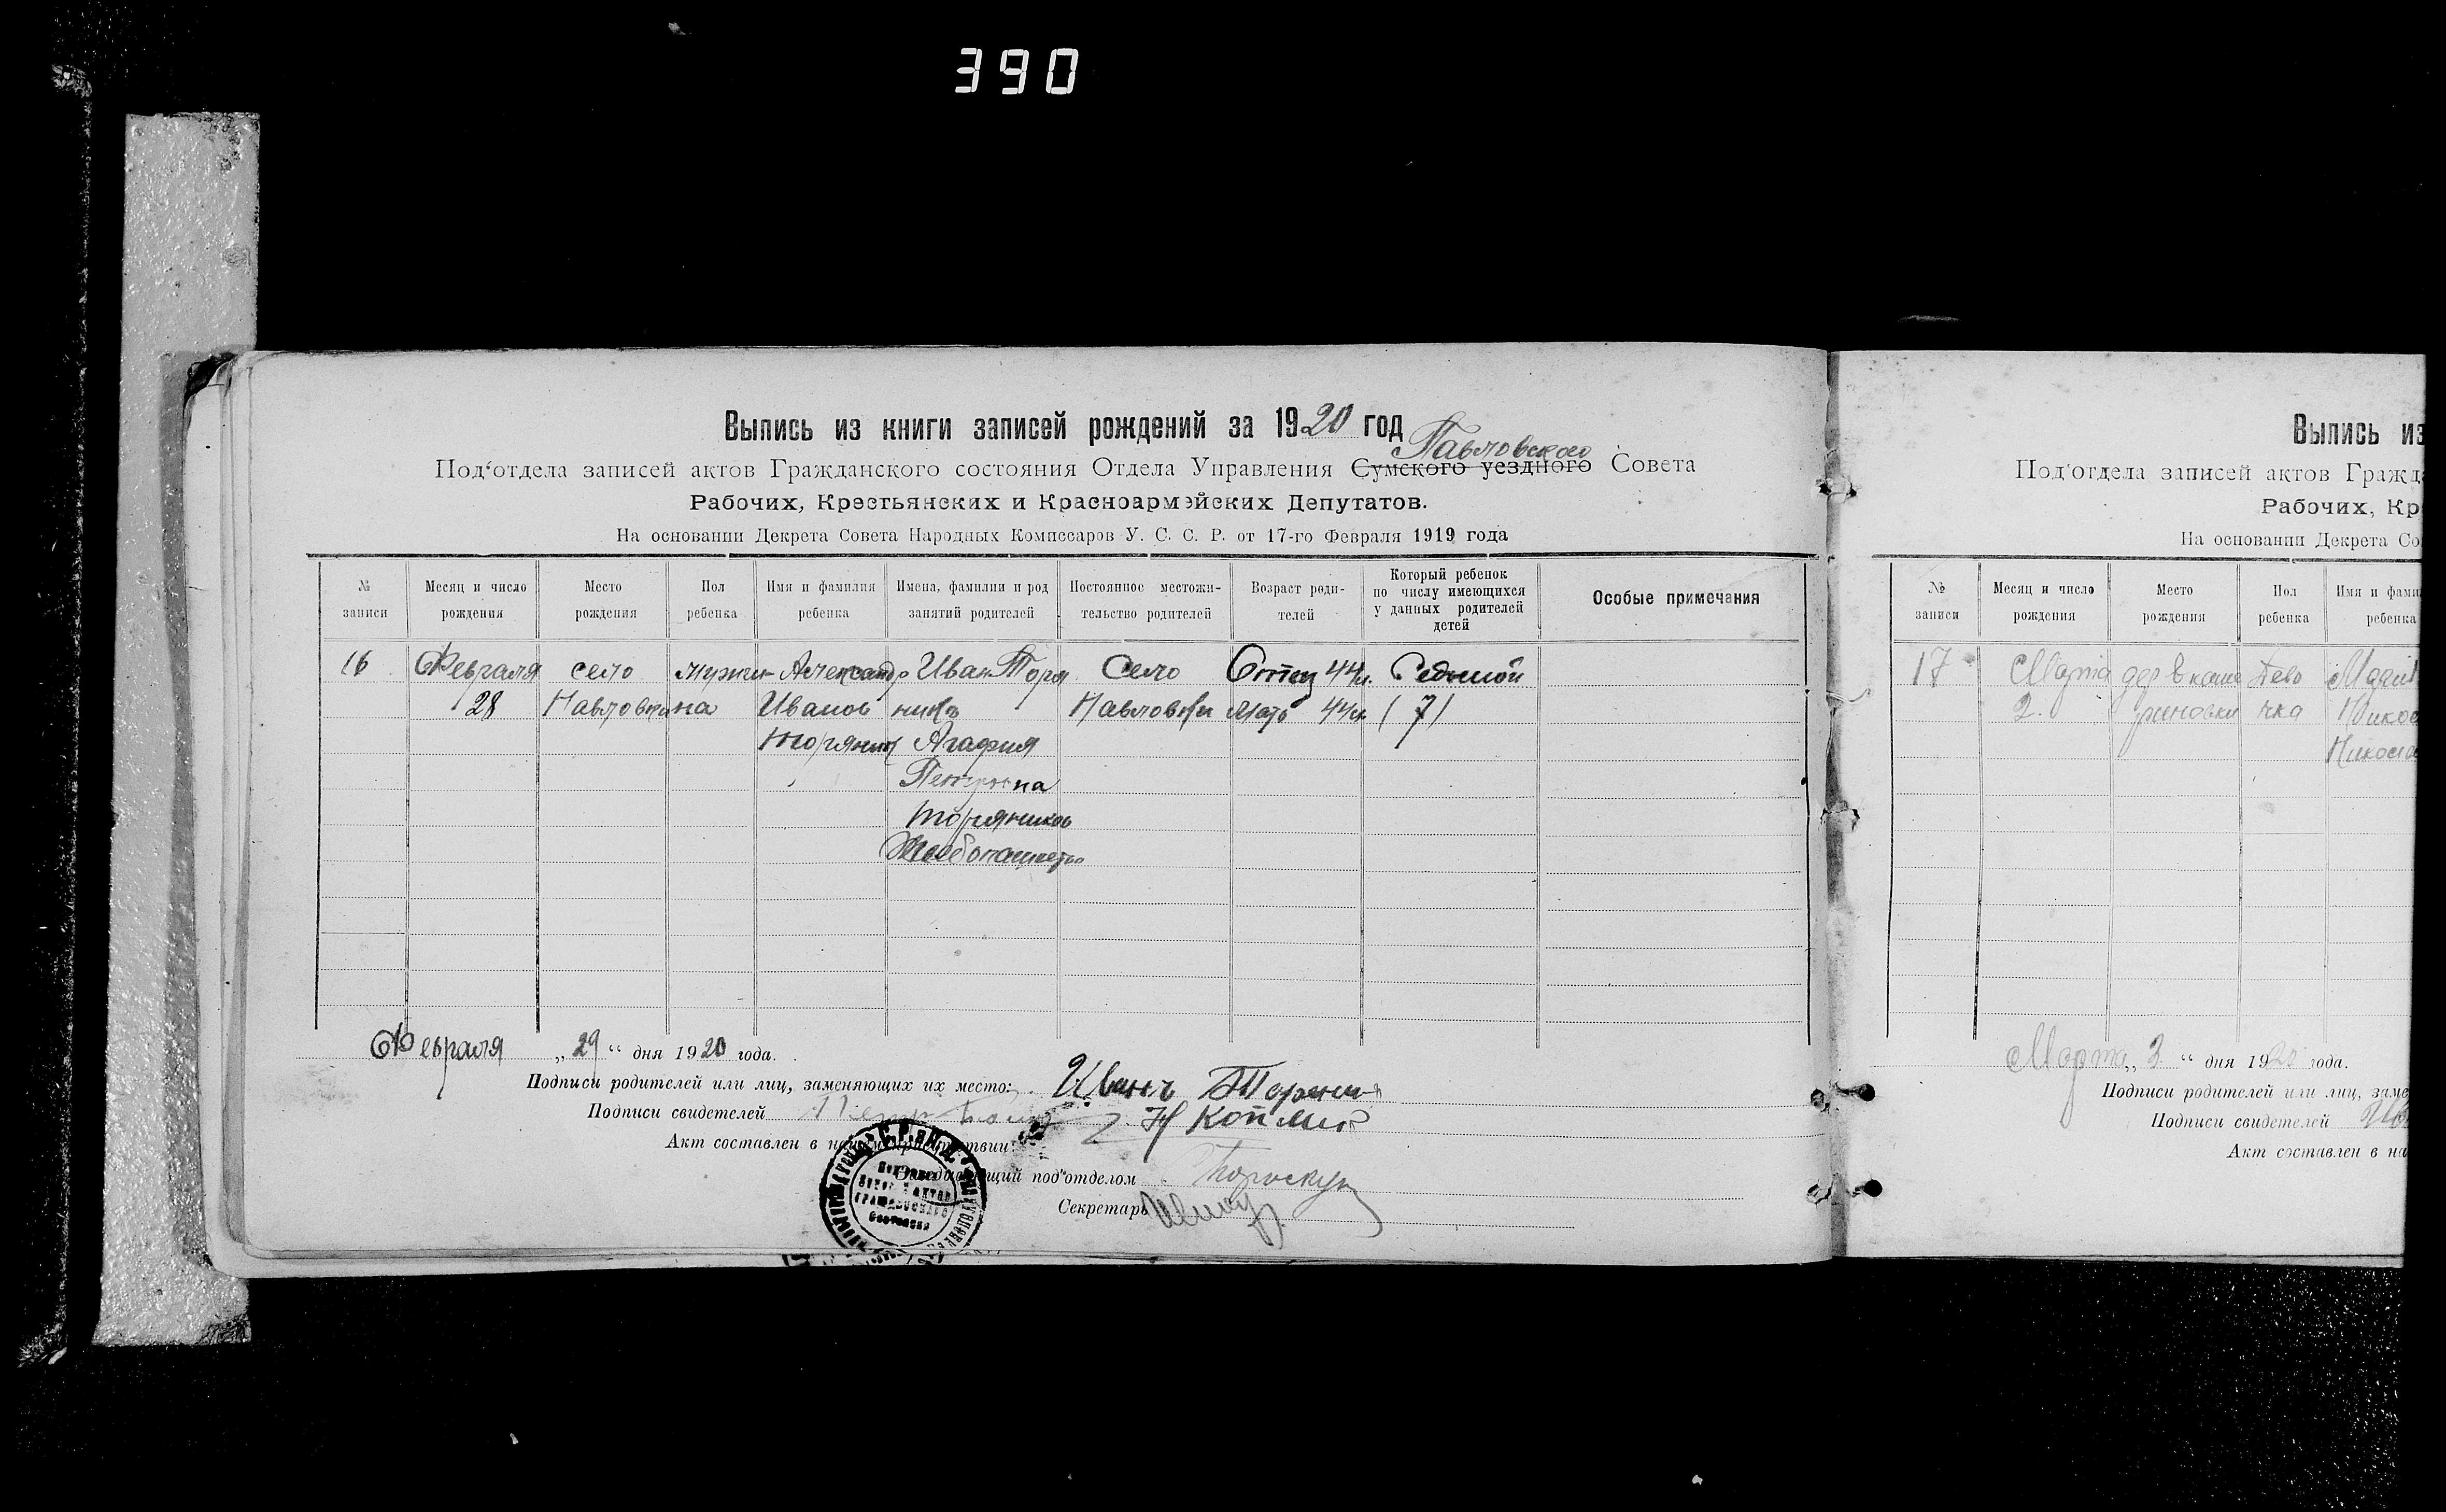 390
Выпись из книги записей рождений за 1920 год
Павловского
Под‘отдела записей актов Гражданского состояния Отдела Управления Сумского уездного Совета
Рабочих, Крестьянских и Красноармэйских Депутатов.
На основании Декрета Совета Народных Комиссаров У. С. С. Р. от 17-го Февраля 1919 года
№ записи
Месяц и число рождения
Место рождения
Пол ребенка
Имя и фамилия ребенка
Имена, фамилии и род занятий родителей
Постоянное местожи-тельство родителей
Возраст роди-телей
Который ребенок по числу имеющихся у данных родителей детей
Особые примечания
16 Февраля село мужчи Александр Иван Торя Село Отец 44л. Седьмой
28 Павловка на Иванов никъ Павловки мать 44л. (7)
Агафия
Петровна
Торяников
Хлебопашество
Февраля „29“ дня 1920 года.
Подписи родителей или лиц, заменяющих их место: Иванъ
Подписи свидетелей Петр 2. Н
Акт составлен в нашем присутствии:
Заведывающий под‘отделом
Секретарь
Выпись из
Под‘отдела записей актов Гражд
Рабочих, Кр
На основании Декрета Со
№ записи
Месяц и число рождения
Место рождения
Пол ребенка
Имя и фами
ребенка
17 Марта дер Дево
2. чка
Марта „3“ дня 1920 года.
Подписи родителей или лиц, заме
Подписи свидетелей
Акт составлен в на